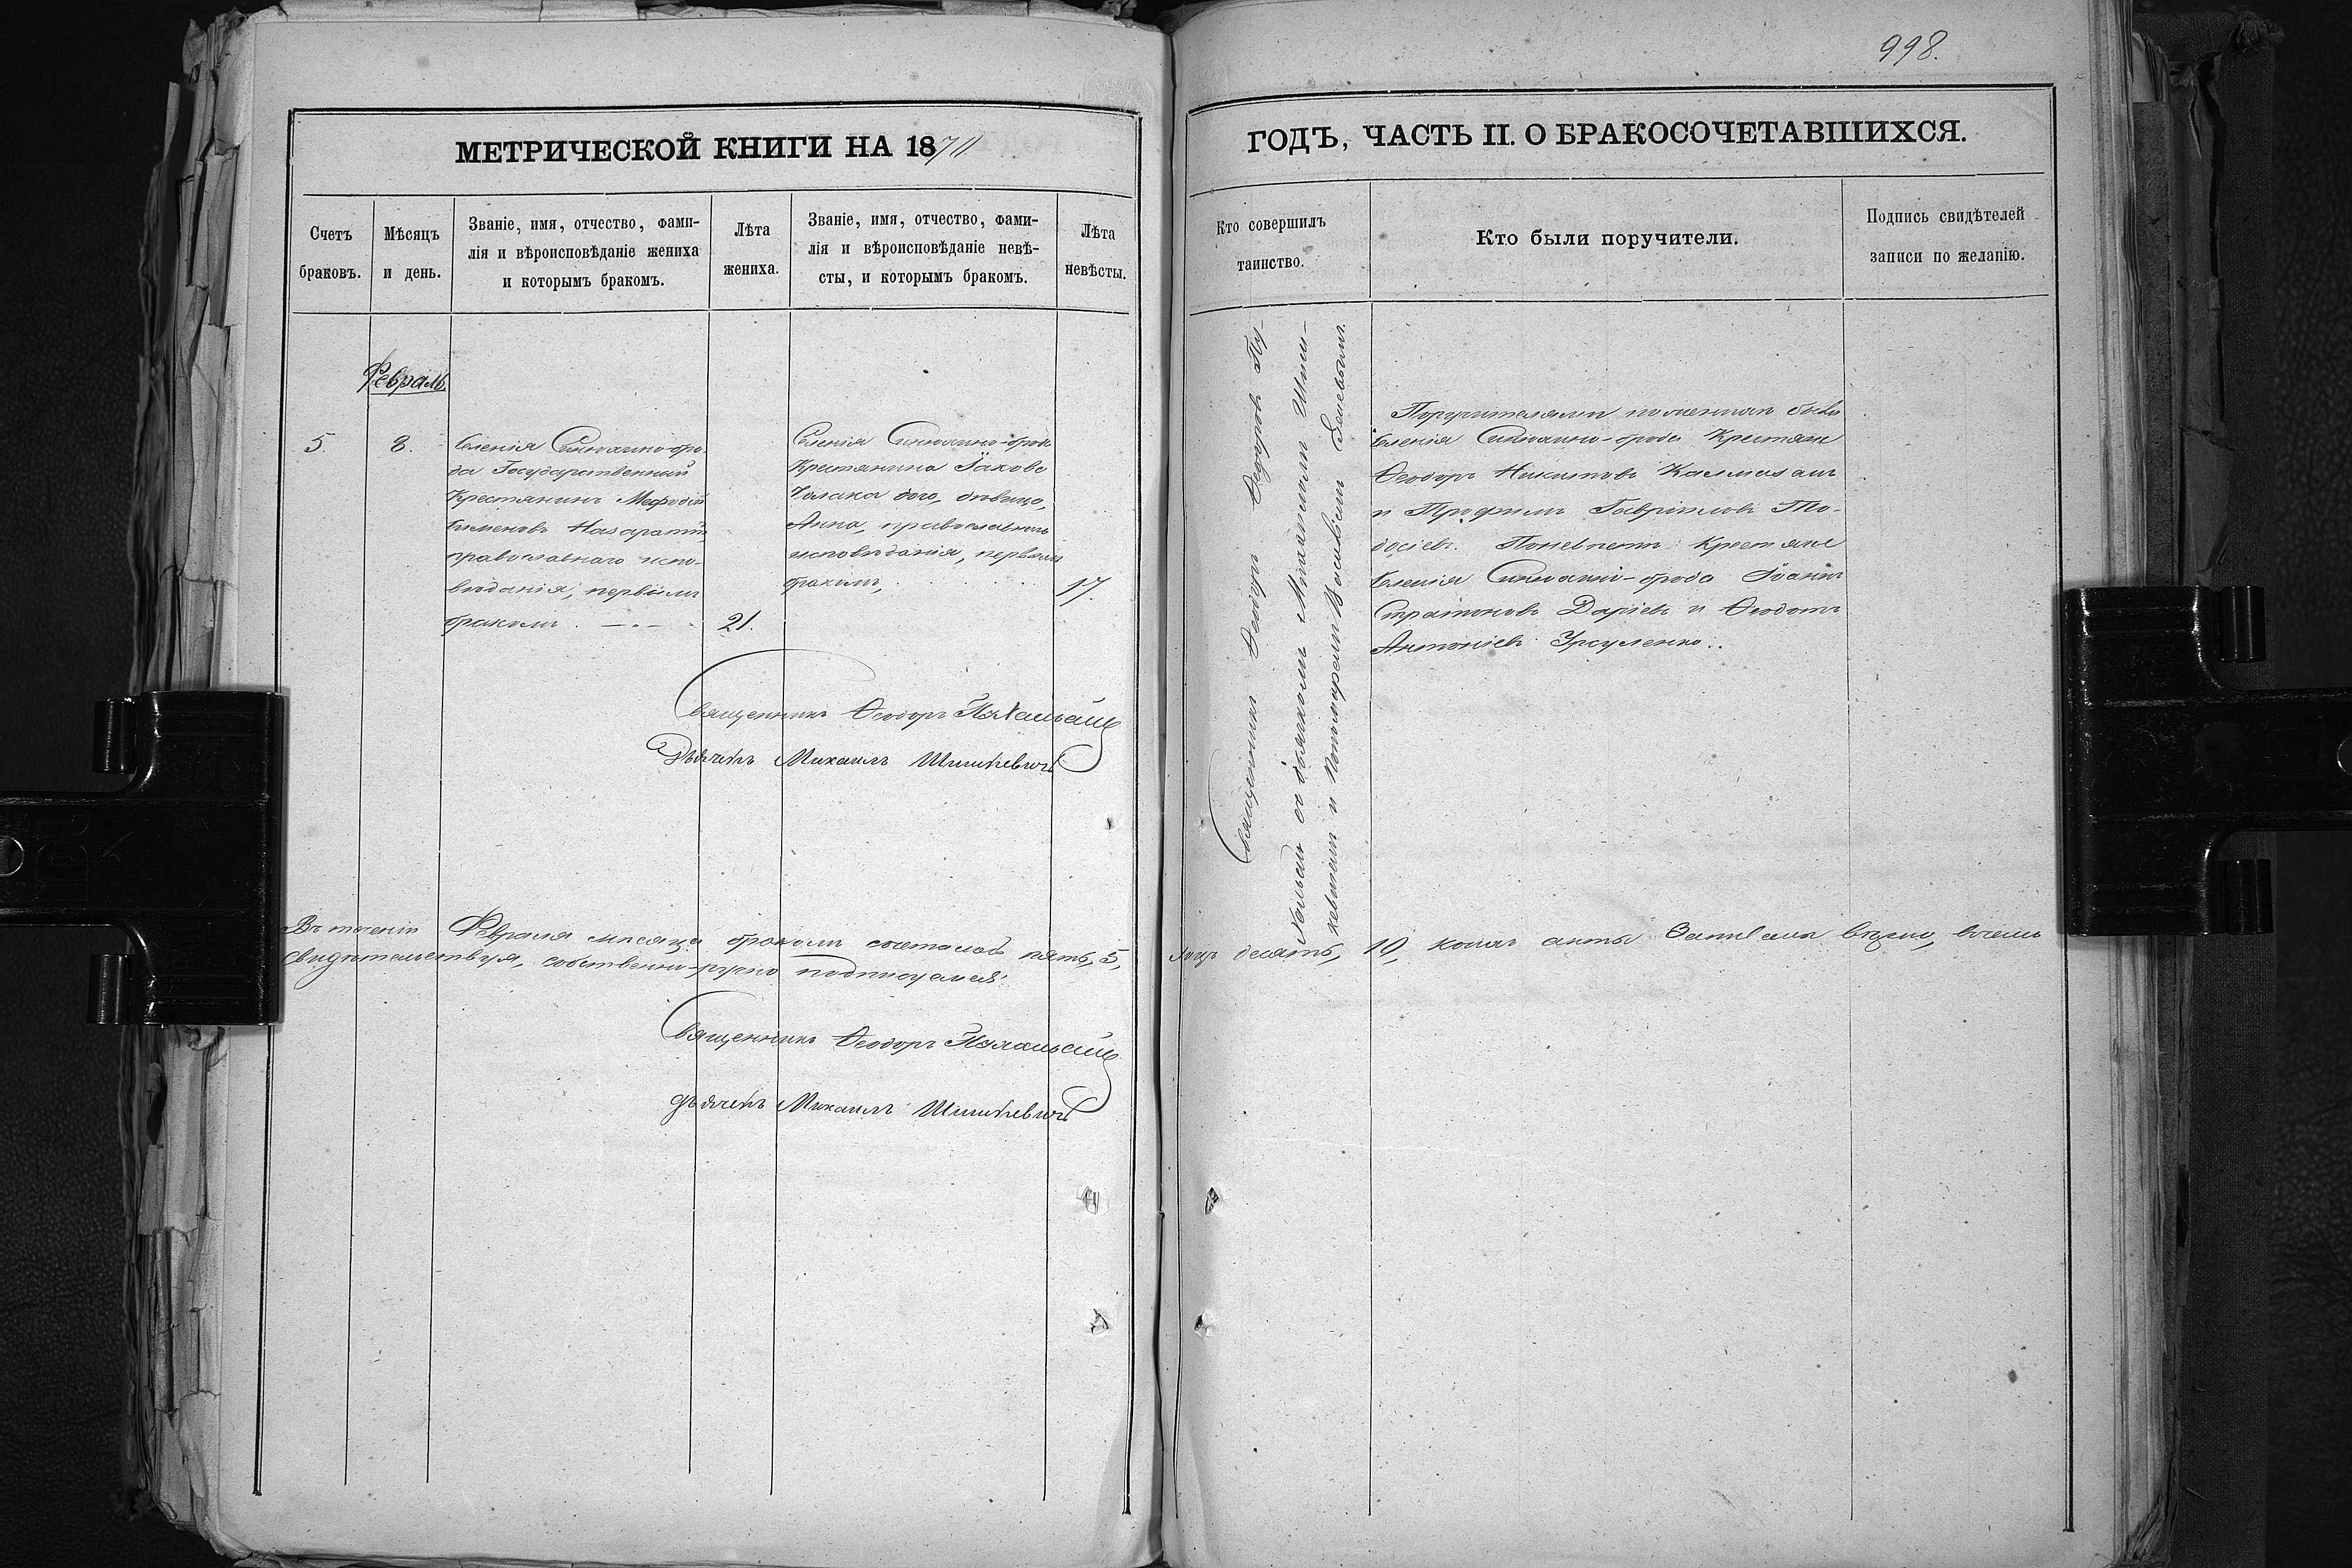 998.
МЕТРИЧЕСКОЙ КНИГИ НА 1871
ГОДЪ, ЧАСТЬ II. О БРАКОСОЧЕТАВШИХСЯ.
Счетъ браковъ.
Мѣсяцъ и день.
Званіе, имя, отчество, фами-
лія и вѣроисповѣданіе жениха
и которымъ бракомъ.
Лѣта жениха.
Званіе, имя, отчество, фами-
лія и вѣроисповѣданіе невѣ-
сты, и которымъ бракомъ.
Лѣта невѣсты.
Кто совершилъ
таинство.
Кто были поручители.
Подпись свидѣтелей
записи по желанію.
Февраль
5.
8.
Селенія Синюхино-бро-
да Государственный
Крестянинъ Мефодій
православнаго испо-
вѣданія, первымъ
бракомъ
21.
Селенія Синюхино-брода
Крестянина Іакова
дѣвица,
Анна, православнаго
исповѣданія, первымъ
бракомъ,
17.
Священникъ Ѳеодоръ
Дьячекъ Михаилъ Шишкевичъ
Священникъ Ѳеодоръ Ѳедоровъ
съ дьячкомъ Михаиломъ Шиш-
кевичемъ и Пономаремъ
Поручителями по женихѣ были
Селенія Синюхино-брода Крестяне
Ѳеодоръ Никитовъ
и Трофимъ Гавріиловъ Тo-
досіевъ. По невѣстѣ: Крестяне
Селенія Синюхино-брода Іоаннъ
Стратоновъ Даріевъ и Ѳеодотъ
Антоніевъ Урсуленко.
Въ теченіи Февраля мѣсяца бракомъ сочеталось пять, 5,
лицъ десять, 10, коихъ акты записаны вѣрно, въ чемъ
свидѣтельствуя, собственно-ручно подписуемся:
Священникъ Ѳеодоръ
Дьячекъ Михаилъ Шишкевичъ